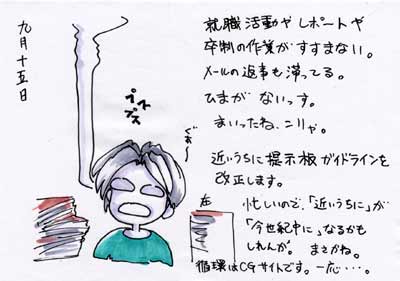 九月十五日
就職活動や レポートや
卒制の作業が すすまない。
メールの返事も 滞ってる。
ひまが ないっす。
まいったね、こりゃ。
近いうちに 提示板 ガイドラインを
改正します。
忙しいので、「近いうちに」が
「今世紀中に」なるかも
しれんが。 まさかね。
左
循環はCGサイトです。一応・・・。
プス
プス
ぐぉ〜